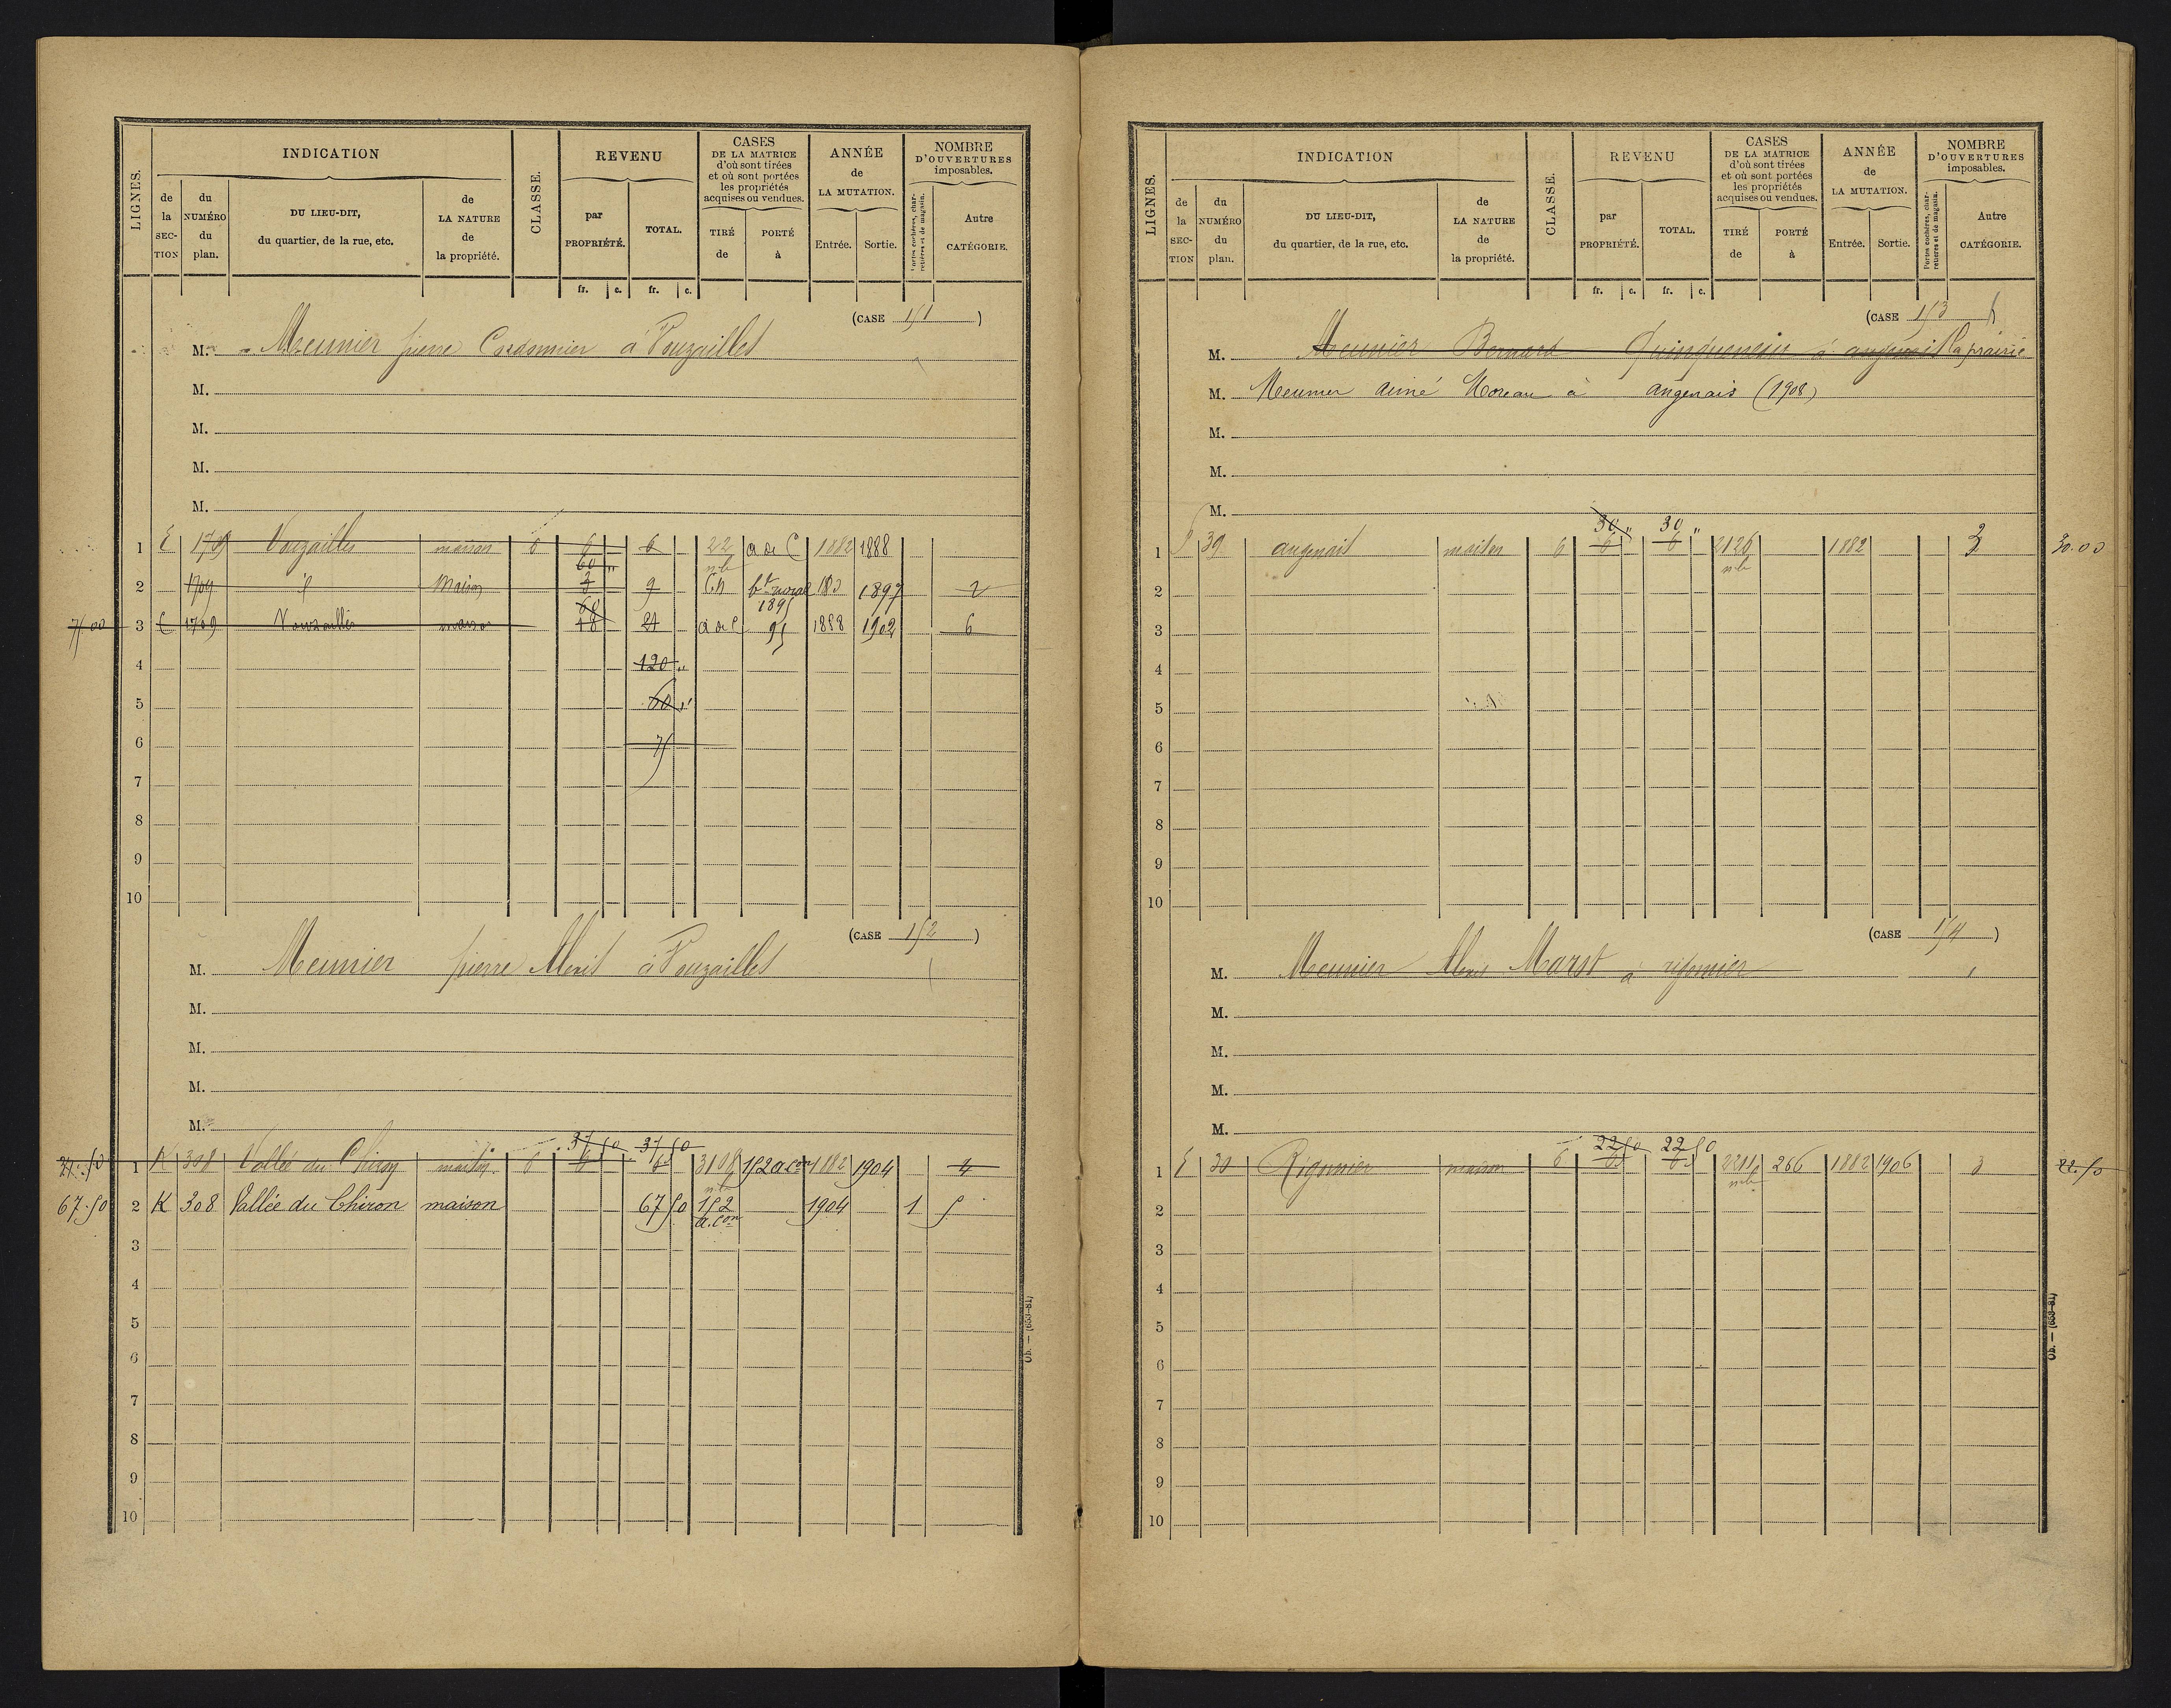 LIGNES.
INDICATION
de la SECTION
du NUMÉRO du plan.
DU LIEU-DIT, du quartier, de la rue, etc.
de LA NATURE de la propriété.
CLASSE.
REVENU
par PROPRIÉTÉ.
TOTAL.
CASES DE LA MATRICE d'où sont tirées et où sont portées les propriétés acquises ou vendues.
TIRÉ de
PORTÉ à
ANNÉE de LA MUTATION.
Entrée.
Sortie.
NOMBRE D'OUVERTURES imposables.
Portes cochères, charretières et de magasin.
Autre CATÉGORIE.
fr. c. fr. c.
(CASE 151)
M. Meunier pierre Cordonnier à Vouzailles
M.
M.
M.
M.
1 E 1709 Vouzailles maison 6 6 6 22 a de C 1882 1888
60 "
2 1709 id Maison 3 9 C.n bt rural 1895 1897 2
60
75 00 3 E 1709 Vouzailles maison 18 21 a de C 95 1888 1902 6
4 120 "
5 60 "
6 75
7
8
9
10
(CASE 152)
M. Meunier pierre Alexis à Vouzailles
M.
M.
M.
M.
37 50 37 50
1 K 308 Vallée du Chiron maison 6 6 6 152 a. con 1882 1904 4
67.50 2 K 308 Vallée du Chiron maison 67 50 152 a. con 1904 1 5
3
4
5
6
7
8
9
10
Ob. — (653-81)
LIGNES.
INDICATION
de la SECTION
du NUMÉRO du plan.
DU LIEU-DIT, du quartier, de la rue, etc.
de LA NATURE de la propriété.
CLASSE.
REVENU
par PROPRIÉTÉ.
TOTAL.
CASES DE LA MATRICE d'où sont tirées et où sont portées les propriétés acquises ou vendues.
TIRÉ de
PORTÉ à
ANNÉE de LA MUTATION.
Entrée.
Sortie.
NOMBRE D'OUVERTURES imposables.
Portes cochères, charretières et de magasin.
Autre CATÉGORIE.
fr. c. fr. c.
(CASE 153)
M. Meunier Bernard Quinqueneau à angenais la prairie
M. Meunier aimé Moreau à angenais (1908)
M.
M.
M.
30 " 30 "
1 39 angenais maison 6 6 6 2126 1882 3 30.00
2
3
4
5
6
7
8
9
10
(CASE 154)
M. Meunier Alexis Marst à rigomier
M.
M.
M.
M.
22 50 22 50
1 E 30 Rigomier maison 6 266 1882 1906 3 22.50
2
3
4
5
6
7
8
9
10
Ob. — (653-81)